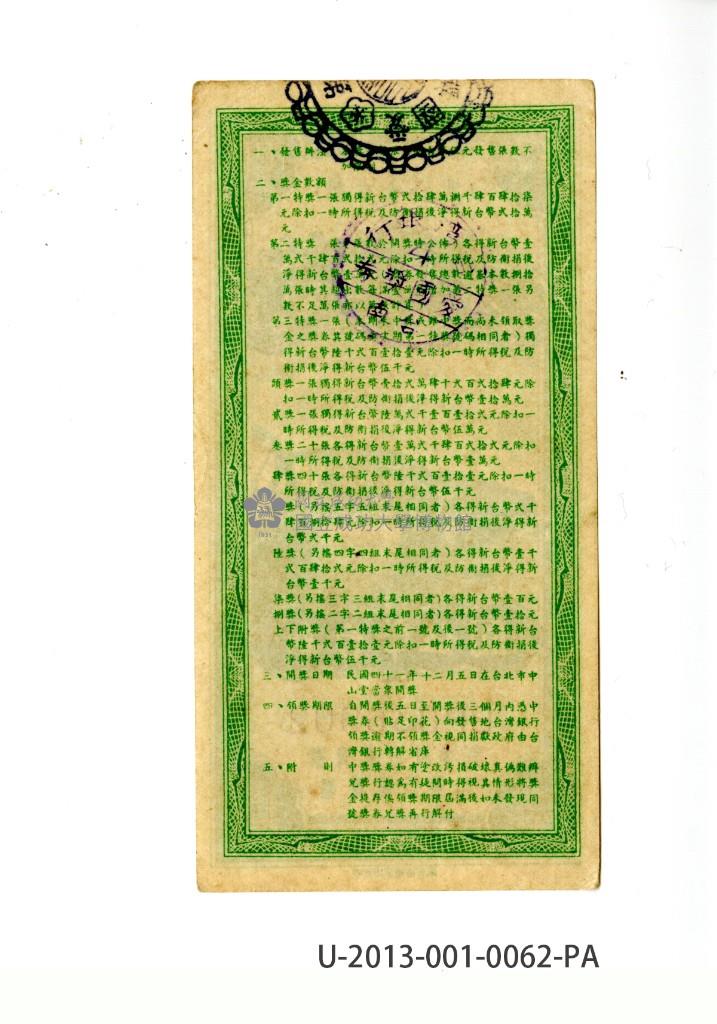 國發
一、發售辦法 元發售張數不
二、獎金數額
第一特獎一張獨得新台幣弍拾肆萬捌千肆百肆拾柒
元除扣一時所得稅及防衞捐後淨得新台幣弍拾萬
元
第二特獎 開獎時公佈)各得新台幣壹
萬弍千肆百 元除扣一時所得稅及防衞捐後
淨得新台幣壹萬
數不足萬張
第三特獎一張 領取獎
金之獎券其號碼 特獎號碼相同者)獨
得新台幣陸千弍百壹拾壹元除扣一時所得稅及防
衞捐後淨得新台幣伍千元
頭獎一張獨得新台幣壹拾弍萬肆千弍百弍拾肆元除
扣一時所得稅及防衞捐後淨得新台幣壹拾萬元
貳獎一張獨得新台幣陸萬弍千壹百壹拾弍元除扣一
時所得稅及防衞捐後淨得新台幣伍萬元
叁獎二十張各得新台幣壹萬弍千肆百弍拾弍元除扣
一時所得稅及防衞捐後淨得新台幣壹萬元
肆獎四十張各得新台幣陸千弍百壹拾壹元除扣一時
所得稅及防衞捐後淨得新台幣伍千元
獎(另搖五字五組末尾相同者)各得新台幣弍千
肆百捌拾肆元除扣一時所得稅及防衞捐後淨得新
台幣弍千元
陸獎(另搖四字四組末尾相同者)各得新台幣壹千
弍百肆拾弍元除扣一時所得稅及防衞捐後淨得新
台幣壹千元
柒獎(另搖三字三組末尾相同者)各得新台幣壹百元
捌獎(另搖二字二組末尾相同者)各得新台幣壹拾元
上下附獎(第一特獎之前一號及後一號)各得新台
幣陸千弍百壹拾壹元除扣一時所得稅及防衞捐後
淨得新台幣伍千元
三、開獎日期 民國四十一年十二月五日在台北市中
山堂當衆開獎
四、領獎期限 自開獎後五日至開獎後三個月內憑中
獎券(貼足印花)向發售地台灣銀行
領獎逾期不領獎金視同捐獻政府由台
灣銀行轉解省庫
五、附則 中獎獎券如有塗改汚損破壞真偽難辨
兌獎行認為有疑問時得視其情形將獎
金提存俟領獎期限屆滿後如未發現同
號獎券兌獎再行解付
國立成功大學博物館
1931
U-2013-001-0062-PA